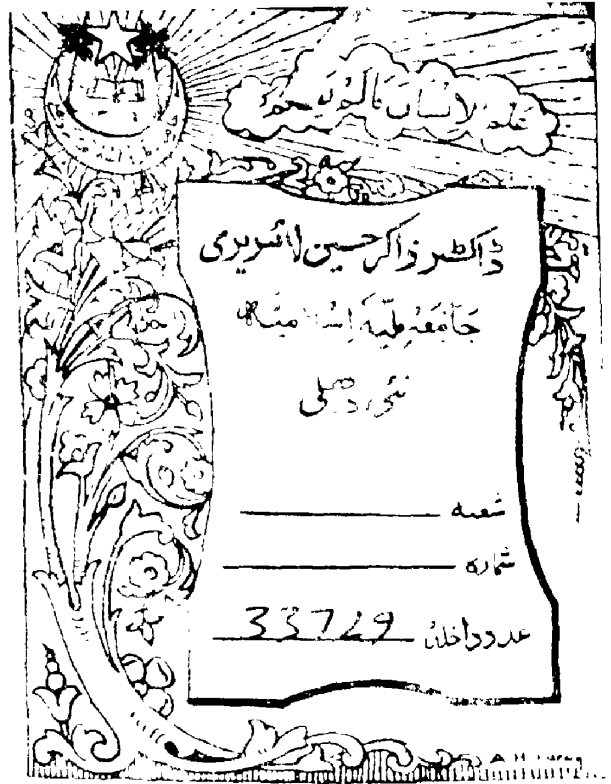 علم الانسان مالم يعلم
ڈاکٹر ذاکر حسین لائبریری
جامعہ ملیہ اسلامیہ
نئی دہلی
شعبہ
شمارہ
عدد داخلہ 33729
A H